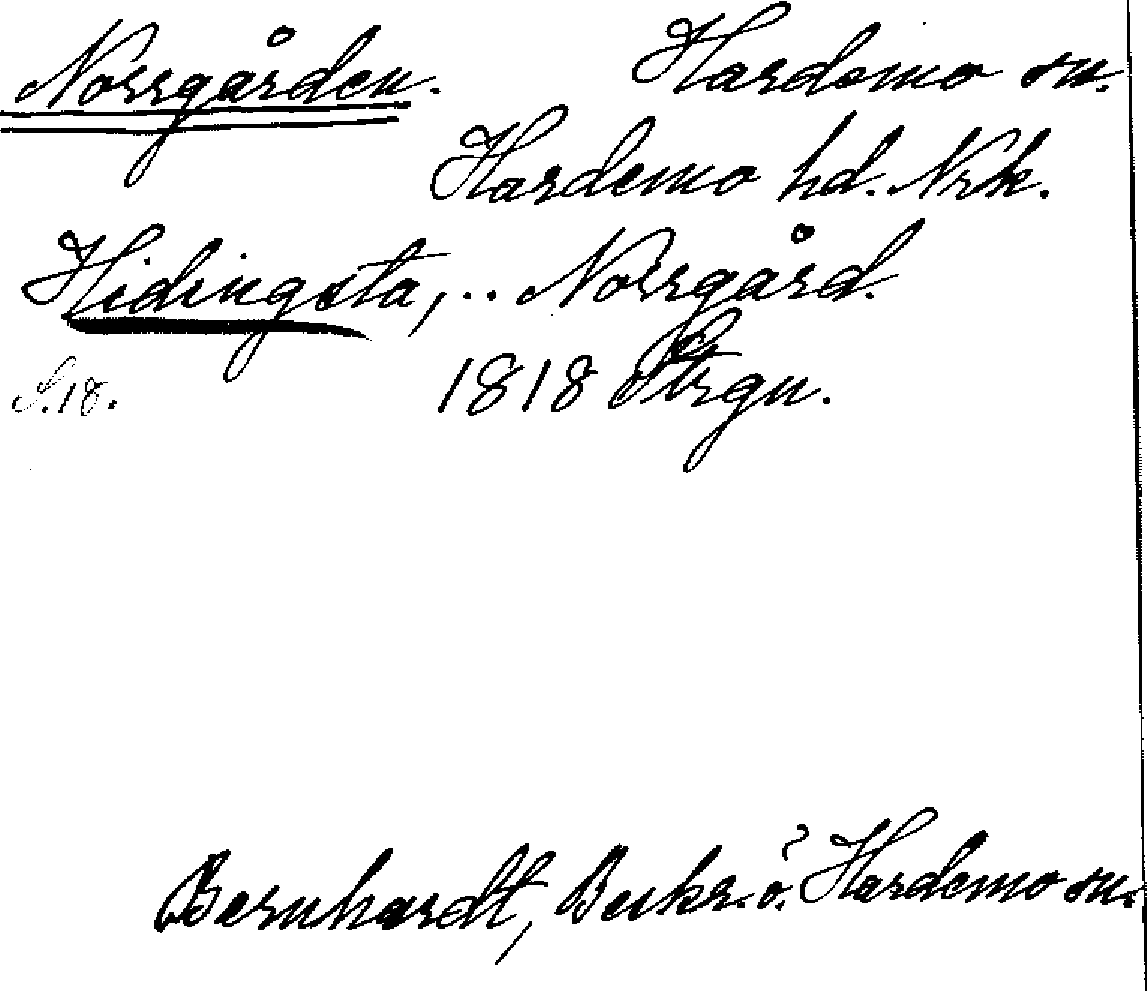 Norrgården. Hardemo sn.
Hardemo hd. Nrk.
Hidingsta, .. Norrgård.
S. 18. 1818
Bernhardt, Beskr. ö. Hardemo sn.